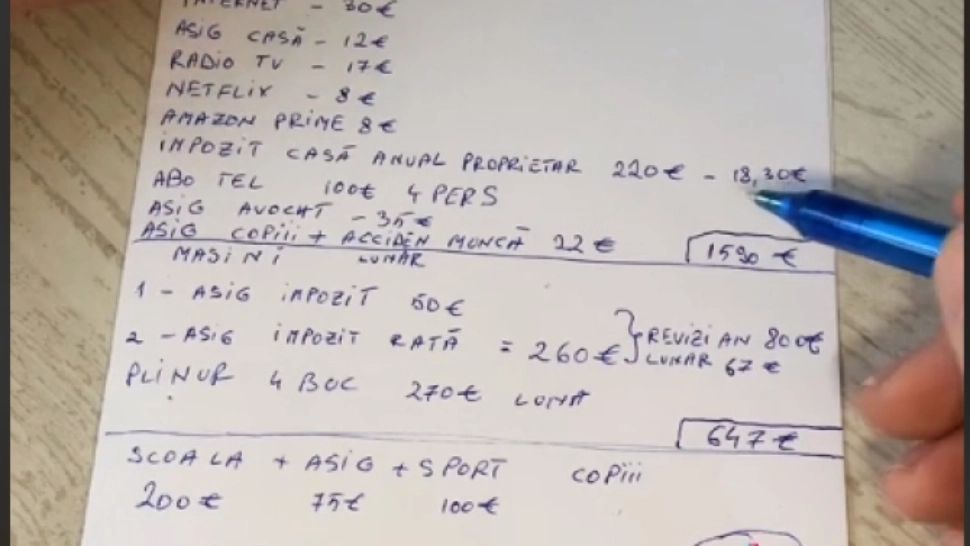 INTERNET - 30€
ASIG CASĂ - 12€
RADIO TV - 17€
NETFLIX - 8€
AMAZON PRIME 8€
IMPOZIT CASĂ ANUAL PROPRIETAR 220€ - 18,30€
ABO TEL 100€ 4 PERS
ASIG AVOCAT - 35€
ASIG COPIII + ACCIDEN MUNCĂ 22€
1590€
MASINI LUNAR
1 - ASIG IMPOZIT 50€
2 - ASIG IMPOZIT RATĂ = 260€ } REVIZI AN 800€
LUNAR 67€
PLINUR 4 BUC 270€ LUNĂ
647€
SCOALA + ASIG + SPORT COPIII
200€ 75€ 100€